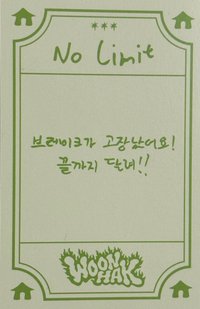 ***
No Limit
브레이크가 고장났어요!
끝까지 달려!!
WOON
HAK